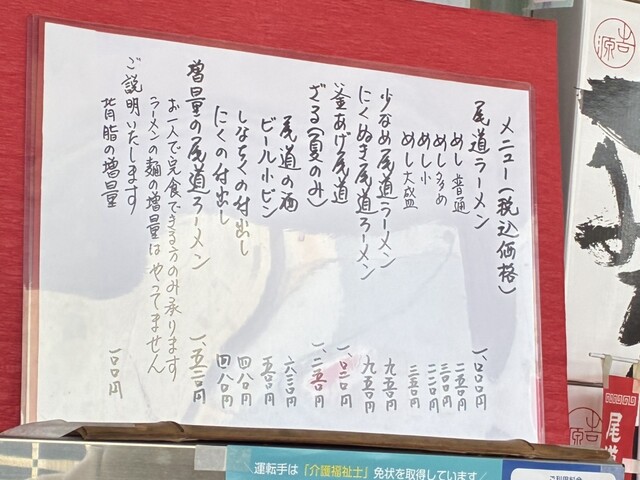 メニュー(税込価格)
尾道ラーメン 一、〇〇〇円
めし 普通 二五〇円
めし 多め 三〇〇円
めし 小 二二〇円
めし 大盛 三五〇円
少なめ尾道ラーメン 九五〇円
にくぬき尾道ラーメン 九五〇円
釜あげ尾道 一、〇二〇円
ざる(夏のみ) 一、二五〇円
尾道の酒 六三〇円
ビール小ビン 五〇〇円
しなちくの付出し 四八〇円
にくの付出し 四八〇円
増量の尾道ラーメン 一、五三〇円
お一人で完食できる方のみ承ります
ラーメンの麺の増量はやってません
ご説明いたします
背脂の増量 一〇〇円
吉源
尾道
運転手は「介護福祉士」免状を取得しています
ご利用料金